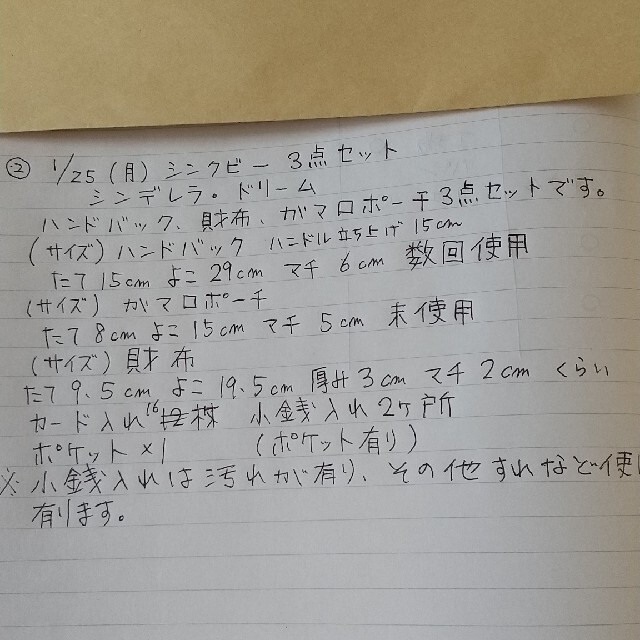 ② 1/25(月) シンクビー 3点セット
シンデレラ・ドリーム
ハンドバック、財布、ガマロポーチ3点セットです。
(サイズ) ハンドバック ハンドル立ち上げ 15cm
たて 15cm よこ 29cm マチ 6cm 数回使用
(サイズ) ガマロポーチ
たて 8cm よこ 15cm マチ 5cm 未使用
(サイズ) 財布
たて 9.5cm よこ 19.5cm 厚み 3cm マチ 2cm くらい
カード入れ 16 枚 小銭入れ 2ヶ所
ポケット×1 (ポケット有り)
※小銭入れは汚れが有り、その他すれなど使
有ります。